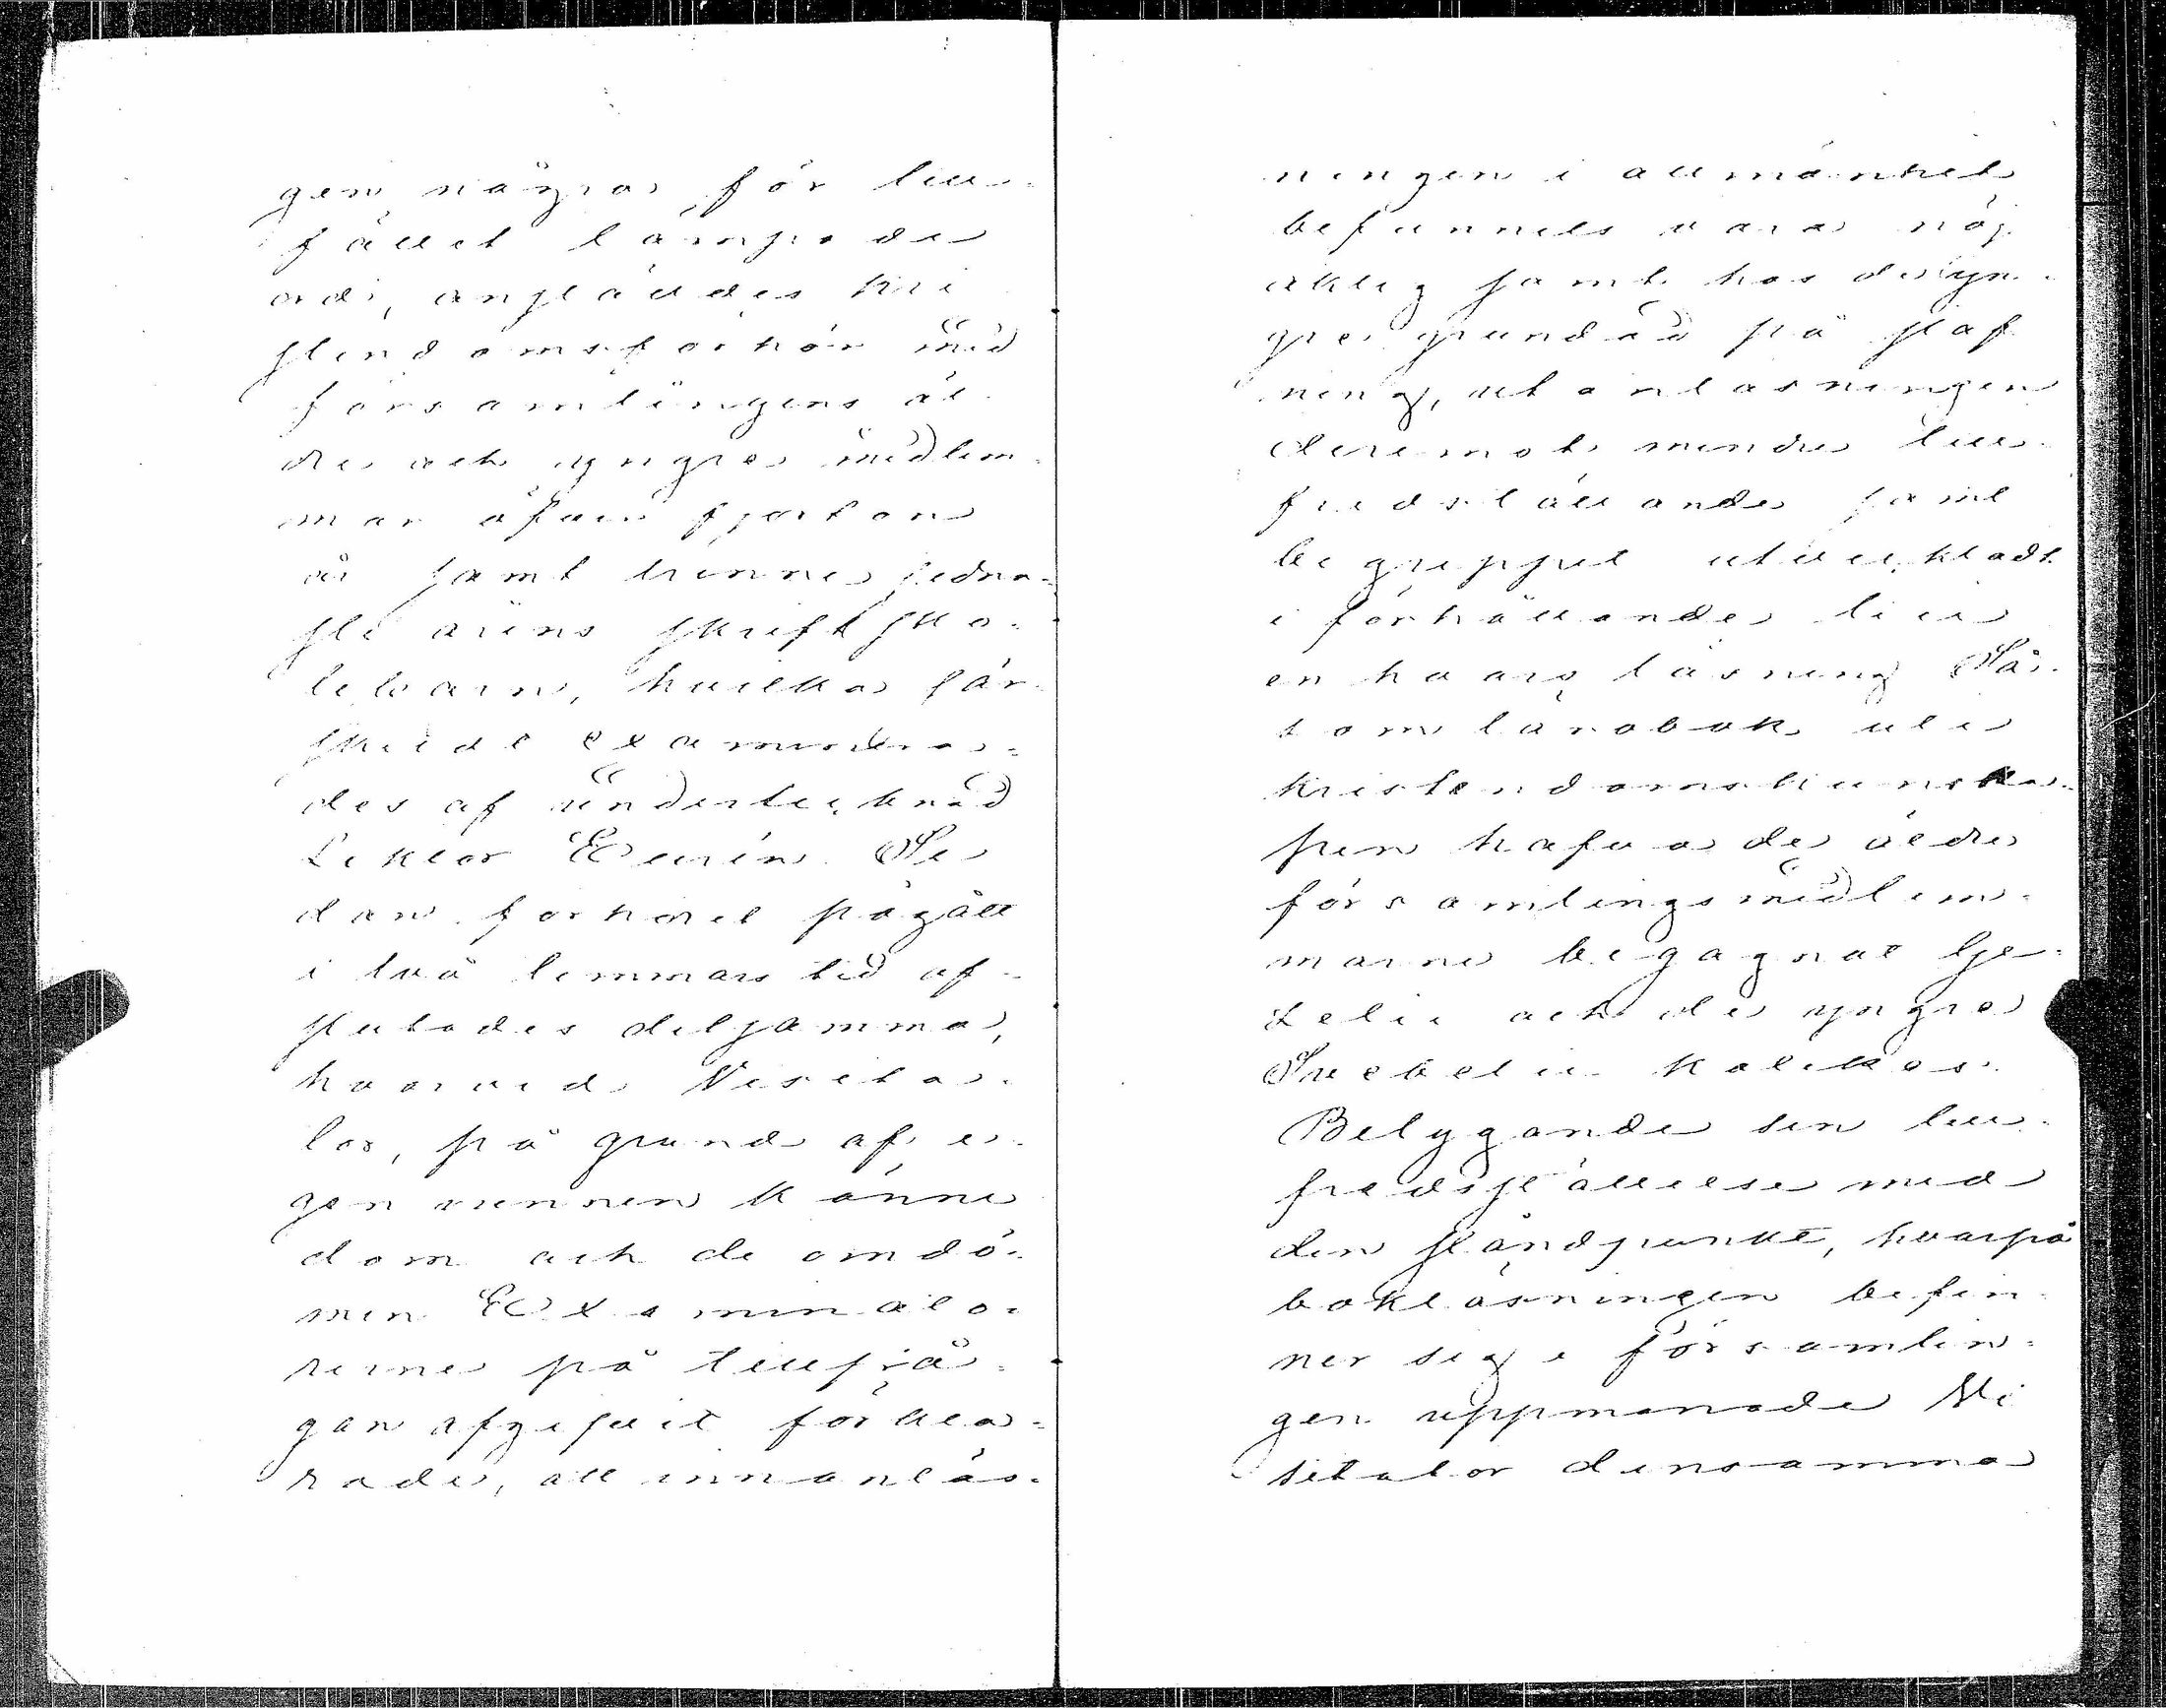 gen några för till-
fället lämpade
ord, anställdes kri
stendomsförhör med
församlingens äl
dre och yngre medlem
mar öfver fjorton
år samt trenne sedna-
ste årens skriftsko-
lebarn, hvilka sär
skildt examinera-
des af undertecknad
Lektor Se
dan förhöret pågått
i två timmars tid af-
slutades detsamma,
hvarvid Visita-
tor, på grund af e-
gen vunnen känne
dom och de omdö-
men Examinato-
rerne på tillfrå-
gan afgifvit förkla-
rade, att innanläs-
ningen i allmänhet
befunnits vara nöj
aktig samt hos de yn-
gre grundad på staf
ning, utanläsningen
deremot mindre till-
fredställande samt
begreppet utveckladt
i förhållande till
en hvars läsning Så-
som lärobok uti
kristendomskunska-
pen hafva de äldre
församlingsmedlem-
marne begagnat Ge-
zelii och de yngre
Svebelii katekes.
Betygande sin till-
fredsställelse med
den ståndpunkt, hvarpå
bokläsningen befin-
ner sig i församlin-
gen uppmanade Vi
sitator densamma